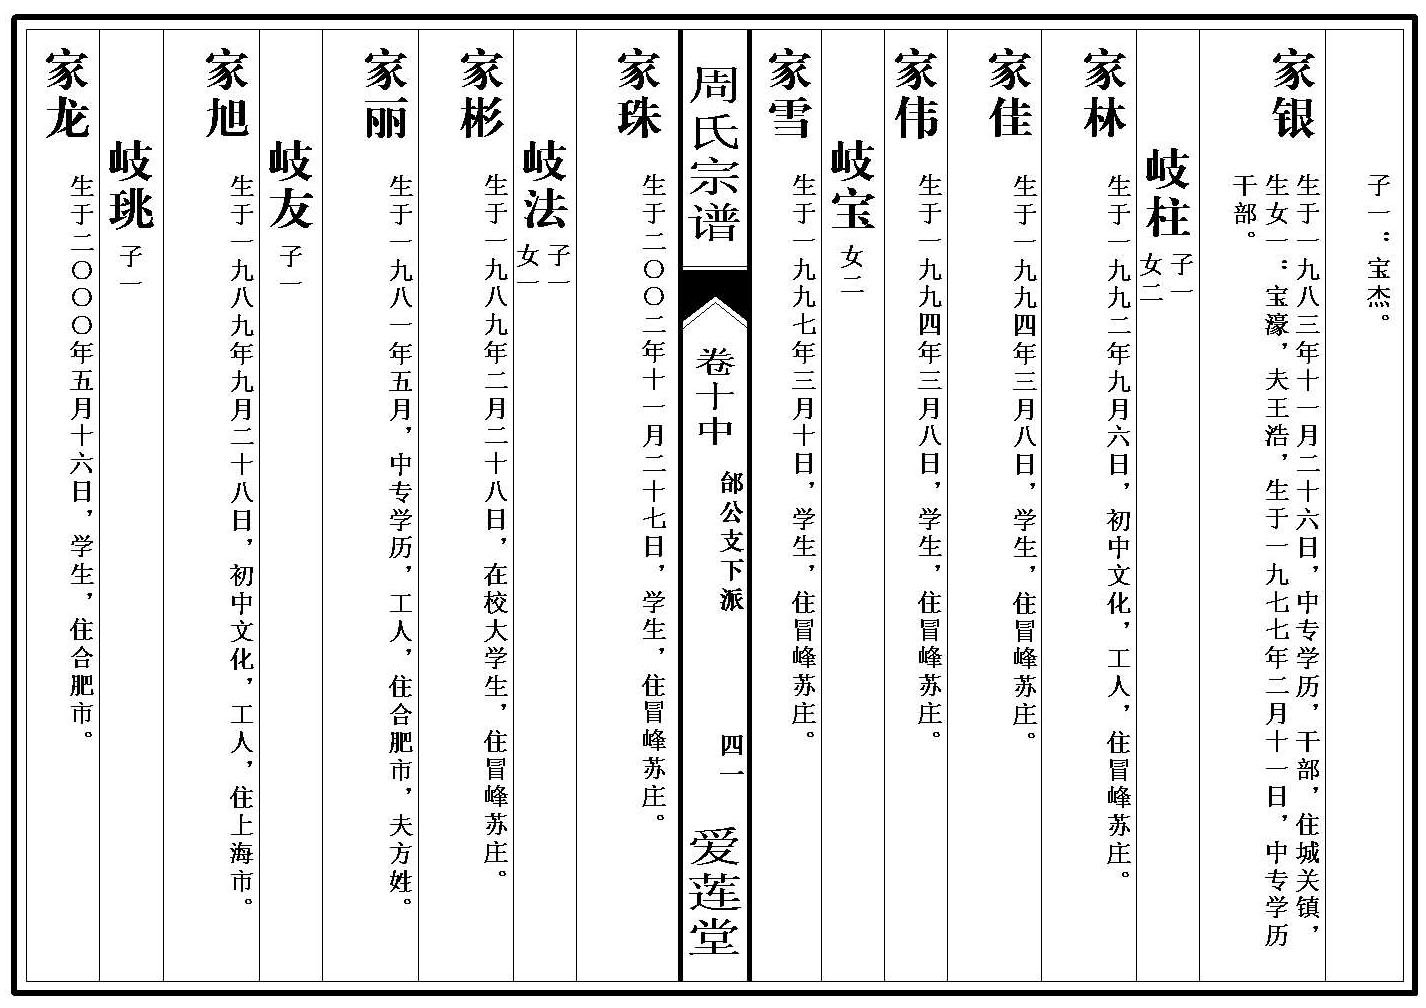 子一：宝杰。
家银
生于一九八三年十一月二十六日，中专学历，干部，住城关镇，
生女一：宝濠，夫王浩，生于一九七七年二月十一日，中专学历
干部。
岐柱
子一
女二
家林
生于一九九二年九月六日，初中文化，工人，住冒峰苏庄。
家佳
生于一九九四年三月八日，学生，住冒峰苏庄。
家伟
生于一九九四年三月八日，学生，住冒峰苏庄。
岐宝
女二
家雪
生于一九九七年三月十日，学生，住冒峰苏庄。
周氏宗谱
卷十中
邰公支下派
四一
爱莲堂
家珠
生于二〇〇二年十一月二十七日，学生，住冒峰苏庄。
岐法
子一
女一
家彬
生于一九八九年二月二十八日，在校大学生，住冒峰苏庄。
家丽
生于一九八一年五月，中专学历，工人，住合肥市，夫方姓。
岐友
子一
家旭
生于一九八九年九月二十八日，初中文化，工人，住上海市。
岐珧
子一
家龙
生于二〇〇〇年五月十六日，学生，住合肥市。